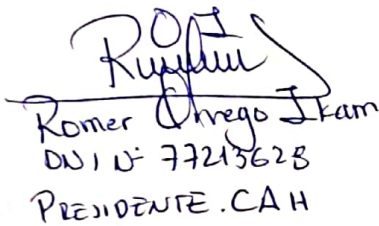 Romer Orrego Ikam
DNI Nº 77213628
PRESIDENTE. CAH